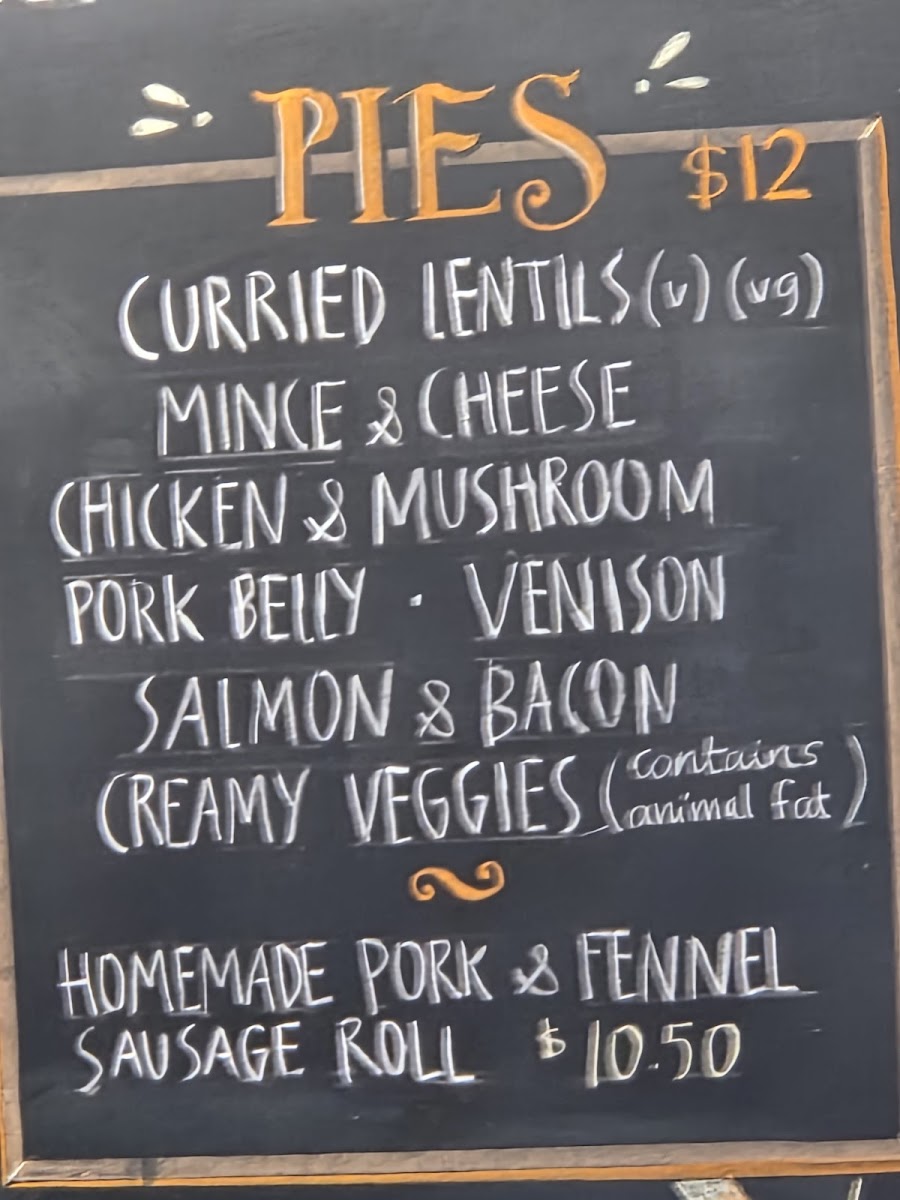 PIES $12
CURRIED LENTILS (v) (vg)
MINCE & CHEESE
CHICKEN & MUSHROOM
PORK BELLY · VENISON
SALMON & BACON
CREAMY VEGGIES (contains
animal fat)
HOMEMADE PORK & FENNEL
SAUSAGE ROLL $10.50